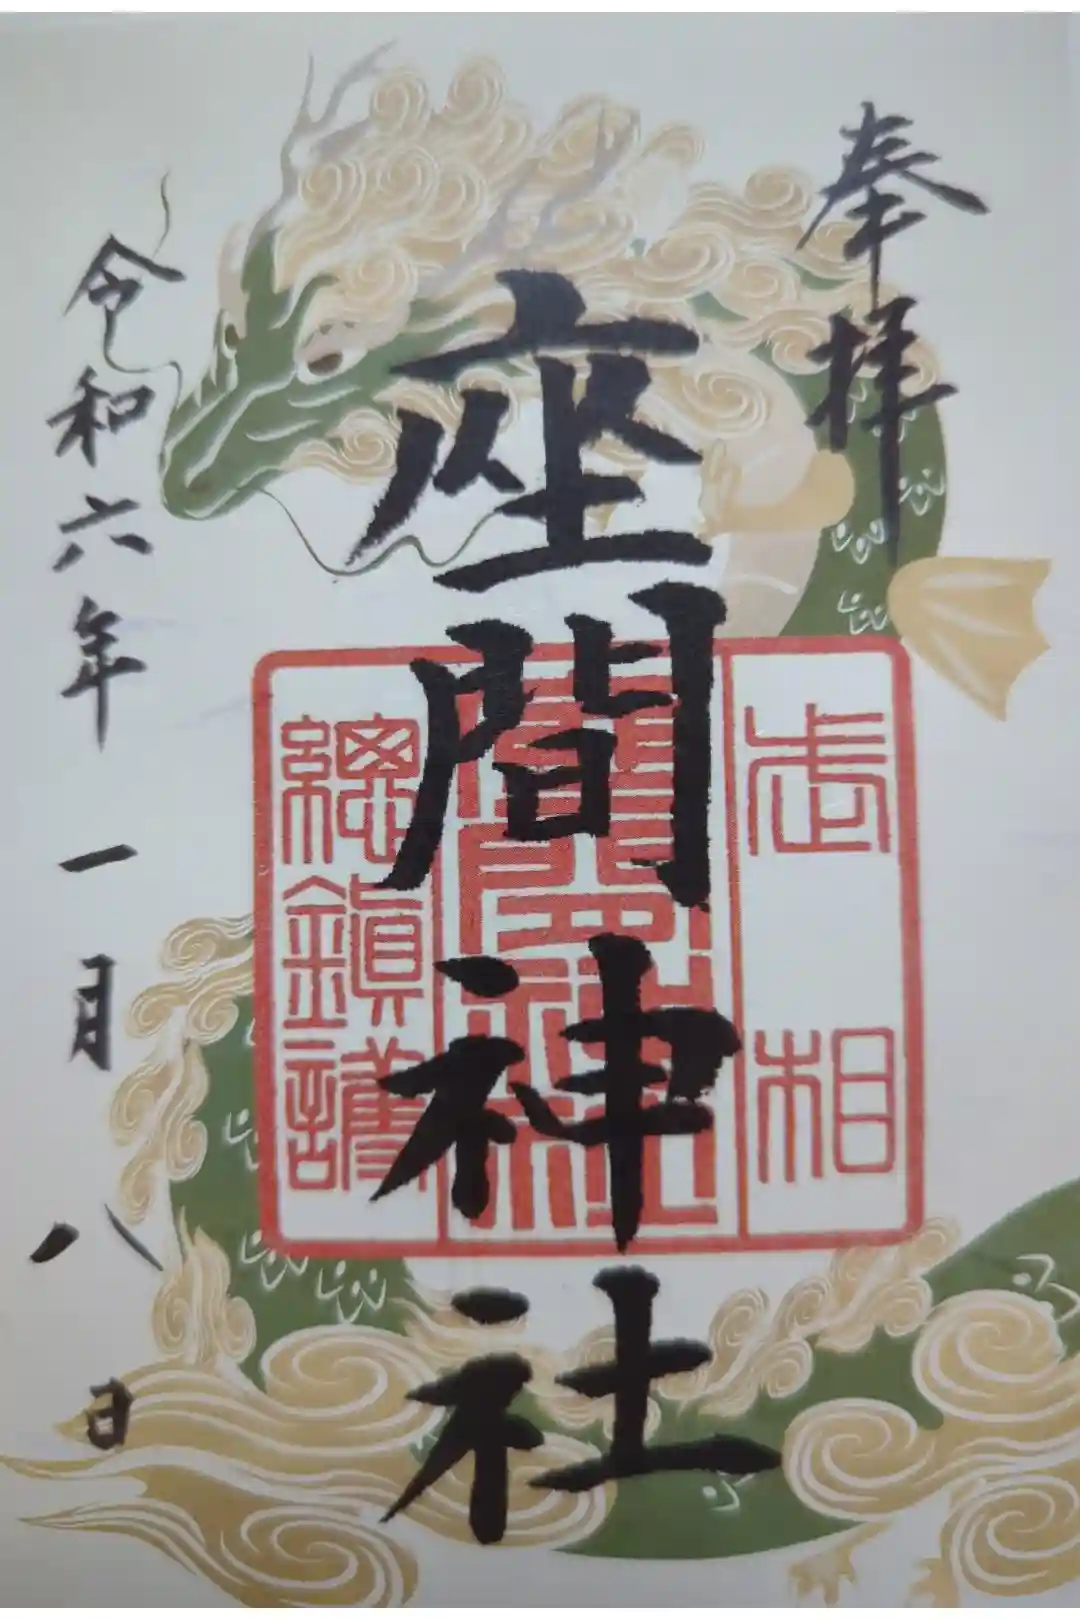 奉拝
座間神社
武相
座間神社
總鎮護
令和六年一月八日